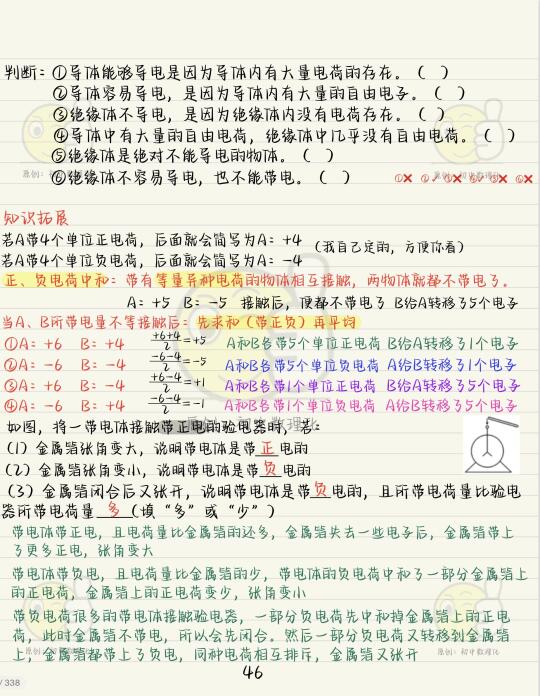 判断：①导体能够导电是因为导体内有大量电荷的存在。（ ）
②导体容易导电，是因为导体内有大量的自由电子。（ ）
③绝缘体不导电，是因为绝缘体内没有电荷存在。（ ）
④导体中有大量的自由电荷，绝缘体中几乎没有自由电荷。（ ）
⑤绝缘体是绝对不能导电的物体。（ ）
⑥绝缘体不容易导电，也不能带电。（ ）
知识拓展
若A带4个单位正电荷，后面就会简写为A：+4 （我自己定的，方便你看）
若A带4个单位负电荷，后面就会简写为A：-4
正、负电荷中和：带有等量异种电荷的物体相互接触，两物体就都不带电了。
A：+5 B：-5 接触后，便都不带电了 B给A转移了5个电子
当A、B所带电量不等接触后：先求和（带正负）再平均
①A：+6 B：+4 +6+4/2=+5 A和B各带5个单位正电荷 B给A转移了1个电子
②A：-6 B：-4 -6-4/2=-5 A和B各带5个单位负电荷 A给B转移了1个电子
③A：+6 B：-4 +6-4/2=+1 A和B各带1个单位正电荷 B给A转移了5个电子
④A：-6 B：+4 -6-4/2=-1 A和B各带1个单位负电荷 A给B转移了5个电子
如图，将一带电体接触带正电的验电器时，若：
（1）金属箔张角变大，说明带电体是带正电的
（2）金属箔张角变小，说明带电体是带负电的
（3）金属箔闭合后又张开，说明带电体是带负电的，且所带电荷量比验电
器所带电荷量多（填“多”或“少”）
带电体带正电，且电荷量比金属箔的还多，金属箔失去一些电子后，金属箔带上
了更多正电，张角变大
带电体带负电，且电荷量比金属箔的少，带电体的负电荷中和了一部分金属箔上
的正电荷，金属箔上的正电荷变少，张角变小
带负电荷很多的带电体接触验电器，一部分负电荷先中和掉金属箔上的正电
荷，此时金属箔不带电，所以会先闭合。然后一部分负电荷又转移到金属箔
上，金属箔都带上了负电，同种电荷相互排斥，金属箔又张开
46
/338